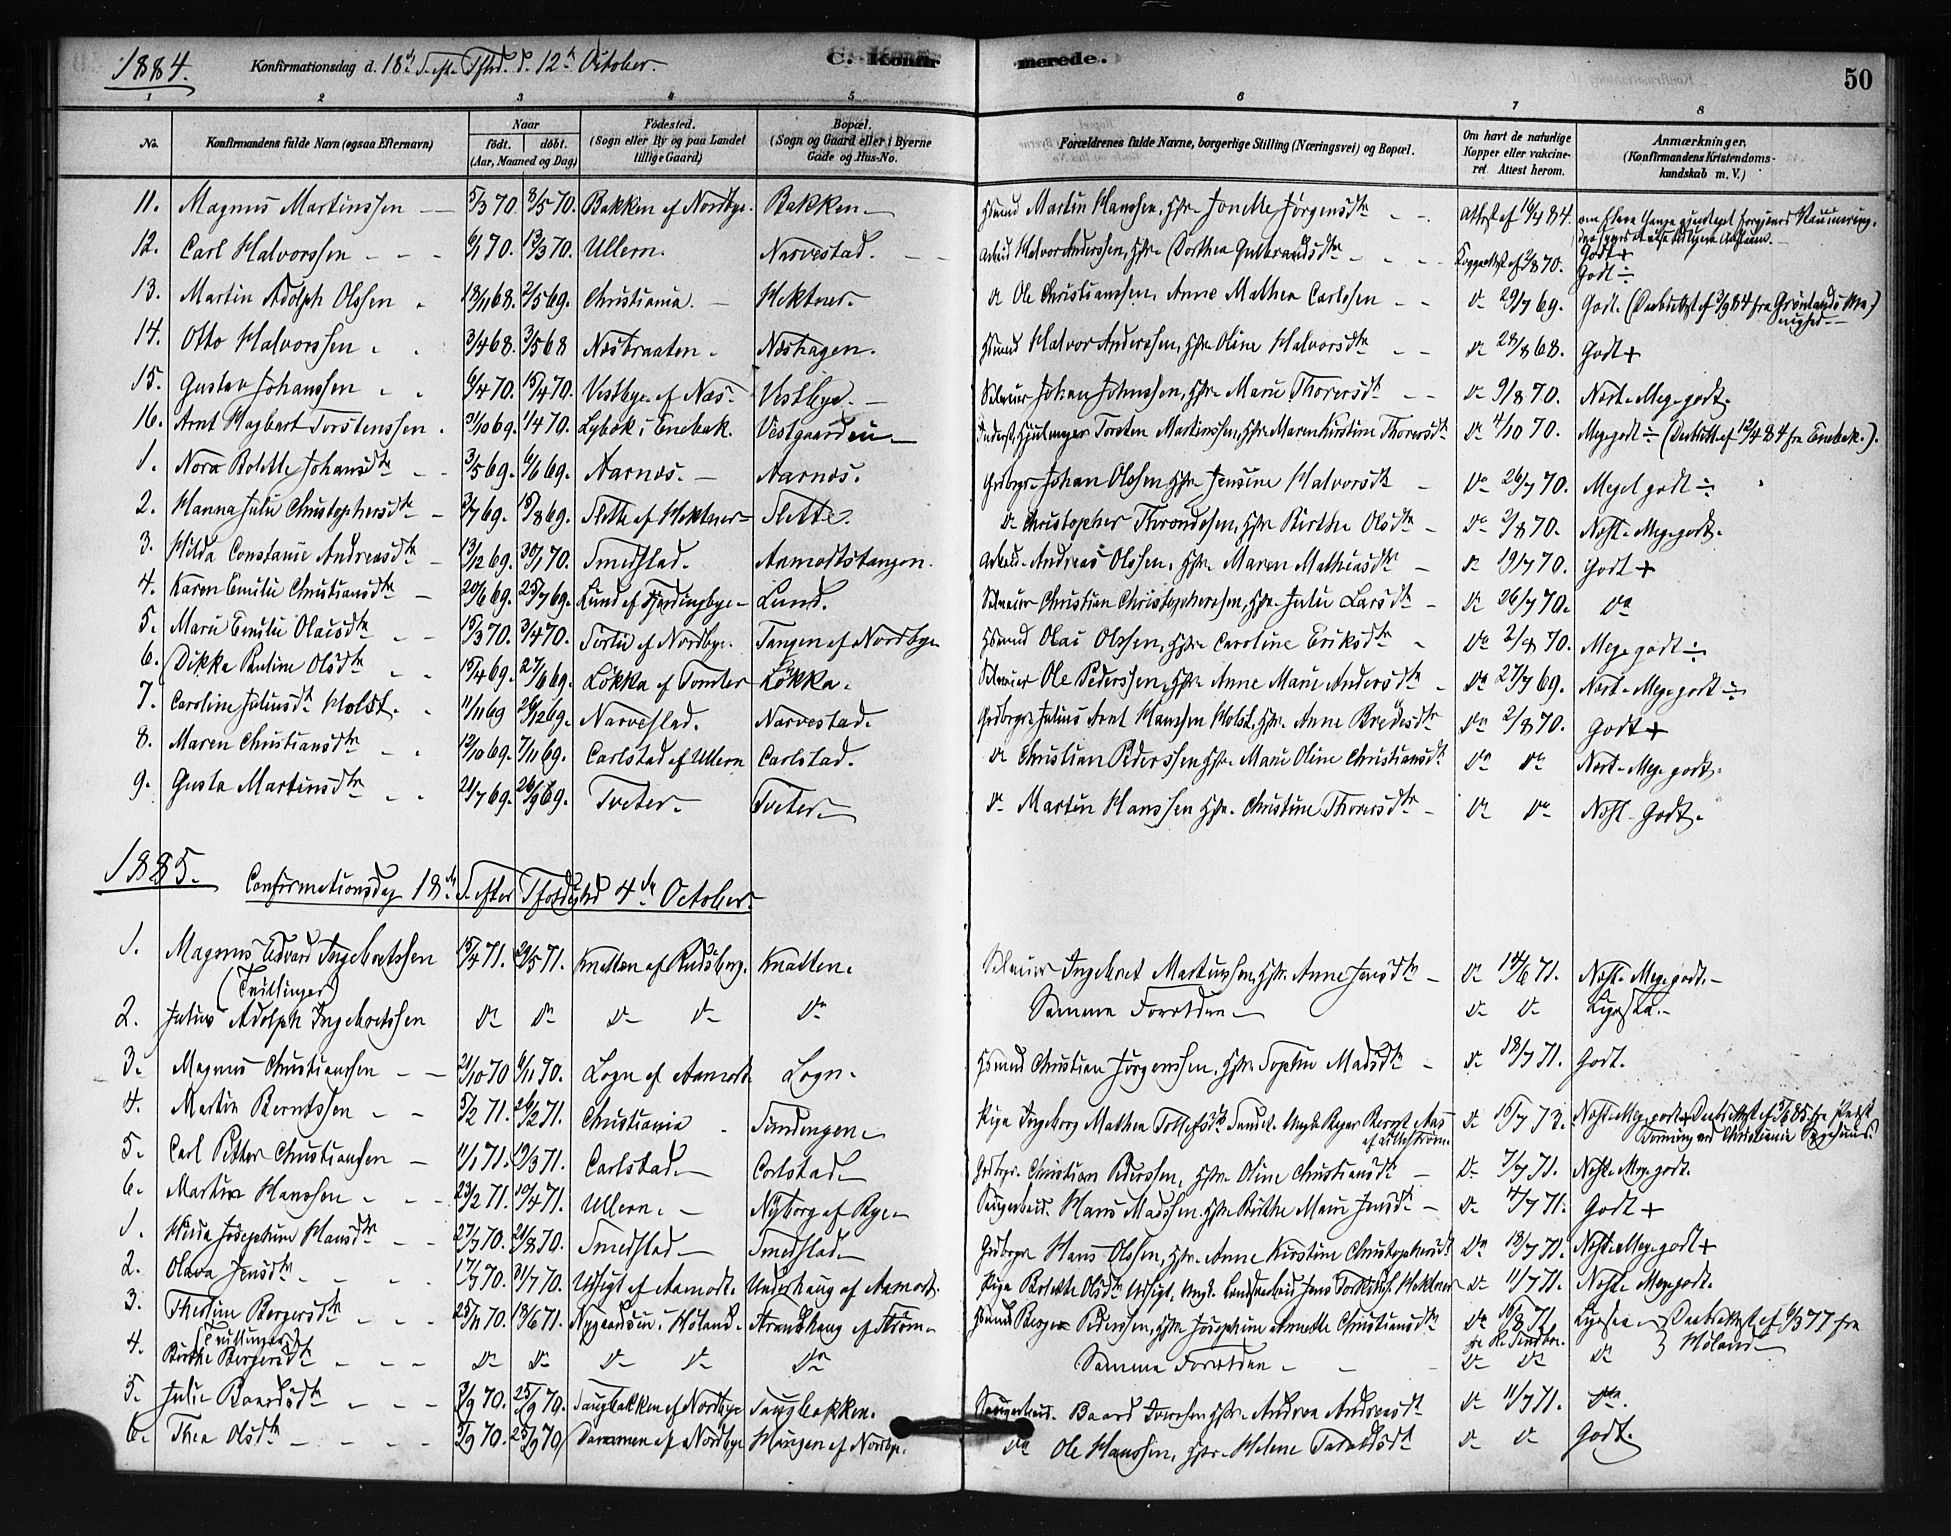 1884. Konfirmationsdag d. 18de S. eft. Tfhd. d. 12te October. C. Konfir merede. 50
1 2 3 4 5 6 7 8
No. Konfirmandens fulde Navn (ogsaa Efternavn) Naar født. døbt. (Aar, Maaned og Dag) Fødested. (Sogn eller By og paa Landet tillige Gaard) Bopæl. (Sogn og Gaard eller i Byerne Gade og Hus-No. Forældrenes fulde Navne, borgerlige Stilling (Næringsvei) og Bopæl. Om havt de naturlige Kopper eller vakcineret. Attest herom. Anmærkninger. (Konfirmandens Kristendomskundskab m. V.)
11. Magnus Martinssen 5/3 70 8/5 70. Bakken af Nordbye. Bakken Hsmnd Martin Hanssen, Hstr. Jonette Jørgensdtr Attest af 16/4 84.
12. Carl Halvorssen 6/1 70. 13/3 70. Ullern. Narvestad. Arbeid Halvor Anderssen, Hstr. Dorthea Gulbrandsdtr Koppeattest af 2/8 70. Godt +
13. Martin Adolph Olssen 18/11 68. 2/5 69. Christiania Hektner. Do Ole Christianssen, Anne Mathea Carlssen Do 29/7 69. Godt. (Daabsattest af 3/9 84 fra Grønlands Menighed.
14. Otto Halvorssen 3/4 68. 3/5 68 Næsbraaten. Næshagen. Hsmnd Halvor Anderssen, Hstr. Oline Halvorsdtr Do 28/8 68. Godt +
15. Gustav Johanssen 6/4 70. 15/4 70. Vestbye af Næs Vestbye. Selveier Johan Johnssen, Hstr. Marie Thoresdtr Do 9/8 70. Næst. Meg. godt.
16. Arnt Hagbart Torstenssen. 31/10 69. 1/4 70. Lybæk i Enebak. Vestgaarden Torsten Martinssen, Hstr. Maren Kirstine Thoresdtr Do 4/10 70. Meg. godt ÷ (Daabsatt. af 12/4 84 fra Enebak.).
1. Nora Bolette Johansdtr 3/5 69. 6/6 69. Aarnæs. Aarnæs. Grdbrgr. Johan Olssen, Hstr. Jensine Halvorsdtr Do 26/7 70. Meget godt ÷
2. Hanna Julie Christophersdtr 3/7 69. 15/8 69. Slette af Hektner Slette. Do Christopher Throndssen, Hstr. Birthe Olsdtr Do 2/8 70. Næst. Meg. godt.
3. Hilda Constanse Andreasdtr 13/12 69. 30/1 70. Smedstad. Aamodtstangen. Arbeid. Andreas Olssen, Hstr. Maren Mathiasdtr Do 19/7 70. Godt +
4. Karen Emilie Christiansdtr 20/6 69. 25/7 69. Lund af Fjerdingbye Lund. Selveier Christian Christopherssen, Hstr. Julie Larsdtr Do 26/7 70. Do
5. Marie Emilie Olaisdtr 15/3 70. 3/4 70. Sorlie af Nordbye. Tangen af Nordbye Hsmnd Olai Olssen, Hstr. Caroline Eriksdtr Do 2/8 70. Meg. godt ÷
6. Dikka Pauline Olsdtr 15/4 69. 27/6 69. Løkka af Tomter Løkka. Selveier Ole Pederssen, Hstr. Anne Marie Andersdtr Do 27/7 69. Næst. Meg. godt ÷
7. Caroline Juliusdt Holst. 11/11 69 26/12 69. Narvestad. Narvestad. Grdbrgr. Julius Arnt Hanssen Holst, Hstr. Anne Bredesdtr Do 2/8 70. Godt +
8. Maren Christiansdtr 12/10 69. 7/11 69. Carlstad af Ullern Carlstad. Do Christian Pederssen, Hstr. Marie Oline Christiansdtr Do Do Næst. Meg. godt.
9. Gusta Martinsdtr 21/7 69. 26/9 69. Tveter. Tveter. Do Martin Hanssen Hstr. Christine Thoresdtr Do Do Næst. Godt.
1885. Confirmationsdag 18de S. efter Tfoldighd 4de October.
1. Magnus Edvard Ingebretssen 15/4 71. 29/5 71. Knatten af Rudsberg. Knatten. Selveier Ingebret Martinssen, Hstr. Anne Jensdtr Do 14/6 71. Næst. Meg. godt.
(Tvillinger)
2. Julius Adolph Ingebretssen Do Do Do Do Do Samme Forældre Do Do Ligesaa.
3. Magnus Christianssen 21/10 70 6/11 70. Logn af Aamodt Logn. Hsmnd Christian Jørgenssen, Hstr. Sophie Madsdtr Do 18/7 71. Godt.
4. Martin Berntssen 5/2 71. 26/2 71. Christiania Sundengen. Pige Ingeborg Mathea Tollefsdtr Sundet. Bernt Aas Do 15/7 73. Næst. Meg. godt.
5. Carl Petter Christianssen 11/1 71. 19/3 71. Carlstad. Carlstad. Grdbrgr. Christian Pederssen, Hstr. Oline Christiansdtr Do 7/7 71. Næst. Meg. godt.
6. Martin Hanssen 23/2 71. 10/4 71. Ullern. Nyborg af Rye. Saugarbeid. Hans Madssen Hstr. Birthe Marie Jensdtr Do 4/7 71. Godt +
1. Hilda Josephine Hansdtr 27/7 70. 21/8 70. Smedstad Smedstad Grdbrgr. Hans Olssen, Hstr. Anne Kirstine Christophersdtr Do 18/7 71. Næst. Meg. godt +
2. Olava Jensdtr 17/7 70. 31/7 70. Udsigt af Aamodt. Underhaug af Aamodt. Pige Bolette Olsdtr Udsigt, Jens Hektner Do 11/7 71. Næst. Meg. godt.
3. Thrine Bergersdtr 25/11 70. 18/6 71. Nygaardseie i Høland. Strandhaug af Strøm Hsmnd Berger Pederssen, Hstr. Josephine Annette Christiansdtr Do 16/8 71. Ligesaa Daabsattest af 6/3 77 fra Høland
(Tvillinger)
4. Birthe Bergersdtr Do Do Do Do Do Samme Forældre Do Do Do
5. Julie Baardsdtr 3/9 70. 25/9 70. Saugbakken af Nordbye Saugbakken. Saugarbeid. Baard Iverssen, Hstr. Andrea Andreasdtr Do 11/7 71. Do.
6. Thea Olsdtr 5/9 70. 25/9 70 Dammen af Nordbye Haugen af Nordbye. Do Ole Hanssen, Hstr. Helene Taraldsdtr Do Do Godt.